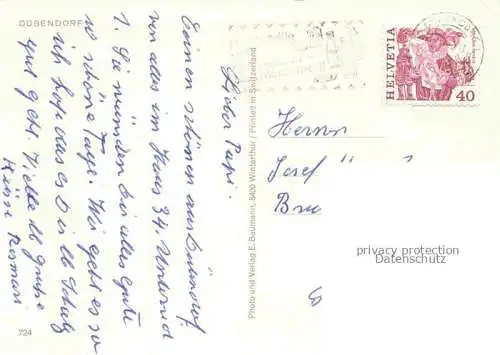 DÜBENDORF
Lieber Papi.
Einen schönen aus Dübendorf.
von alles im Haus 34. Unterried
1. Sie wünschen Dir alles gute
so schöne Tage. Wie geht es so
ich hofe das es Dir
gut geht. Viele lb Grüsse
Küsse Rosmari
724
Photo und Verlag E. Baumann, 8400 Winterthur / Printed in Switzerland
HELVETIA
40
Herrn
Josef
privacy protection
Datenschutz